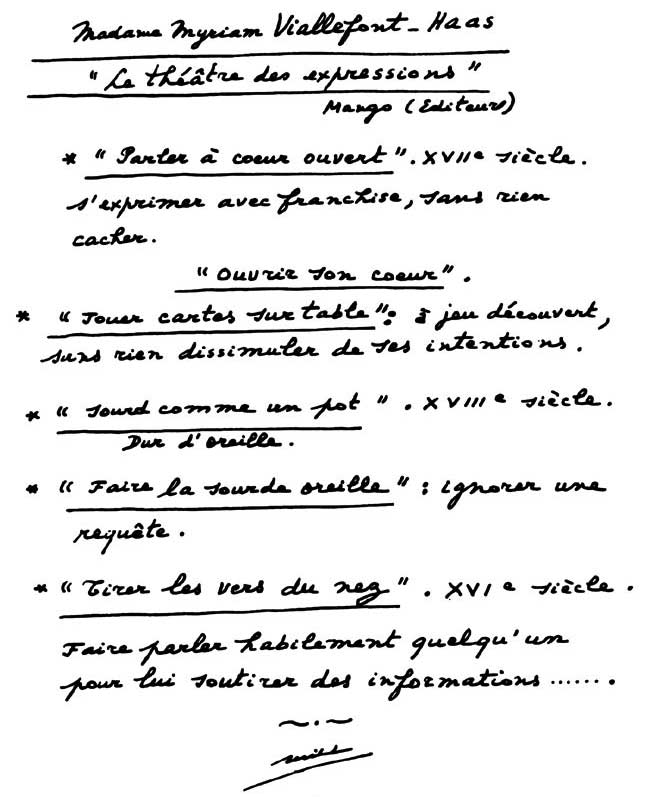 Madame Myriam Viallefont-Haas
"Le théâtre des expressions"
Mango (Editeurs)
* "Parler à coeur ouvert". XVIIe siècle.
s'exprimer avec franchise, sans rien
cacher.
"Ouvrir son coeur".
* "Jouer cartes sur table": à jeu découvert,
sans rien dissimuler de ses intentions.
* "Sourd comme un pot". XVIIIe siècle.
Dur d'oreille.
* "Faire la sourde oreille": ignorer une
requête.
* "Tirer les vers du nez". XVIe siècle.
Faire parler habilement quelqu'un
pour lui soutirer des informations.......